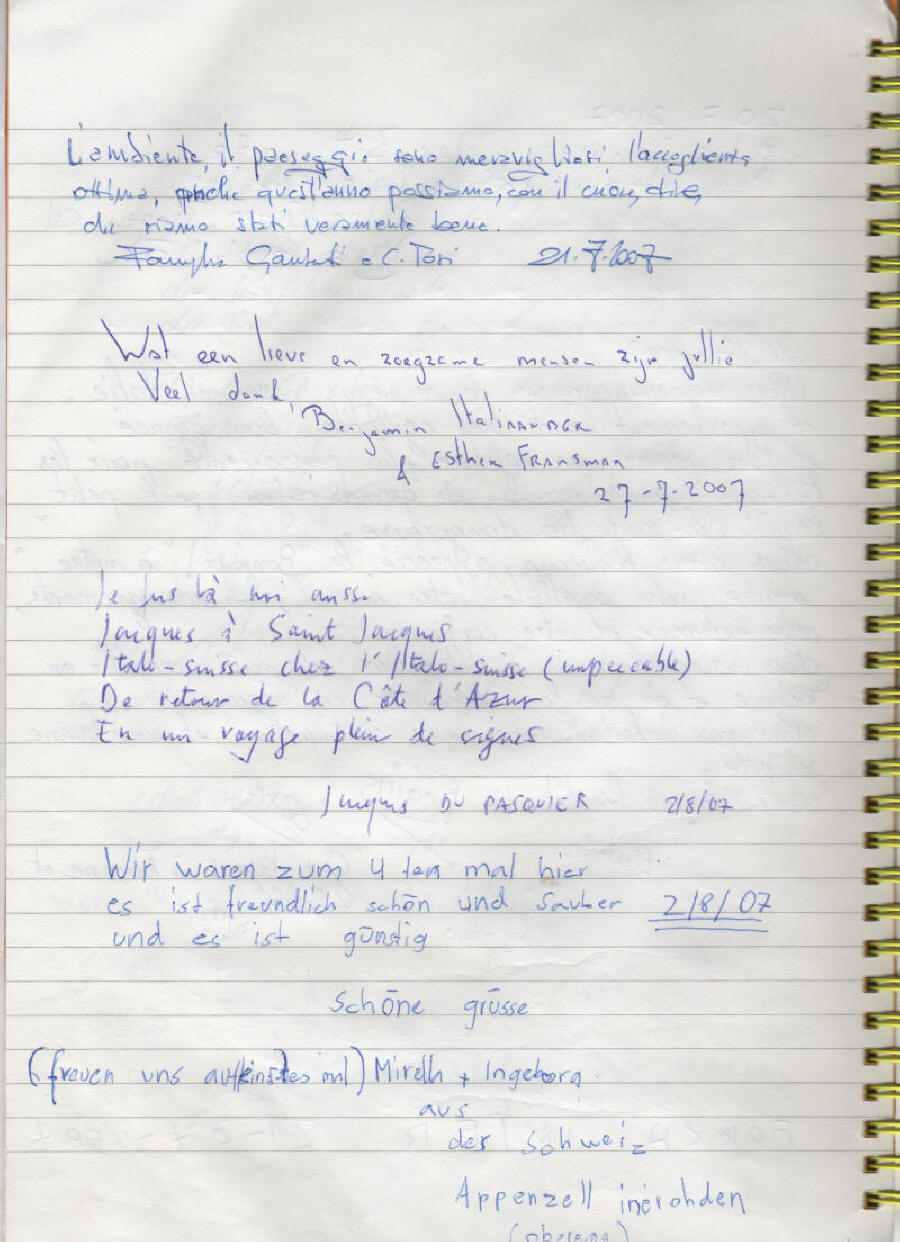 L'ambiente, il paesaggio sono meravigliosi l'accoglienza
ottima, anche quest'anno possiamo, con il cuore, dire,
che siamo stati veramente bene.
Famiglia e C. Tosi 21.7.2007
Wat een lieve en zorgzame mensen zijn jullie
Veel dank,
Benjamin
& Esther Fransman
27-7-2007
Je fus là moi aussi
Jacques à Saint Jacques
Italo-suisse chez l'Italo-suisse (impeccable)
De retour de la Côte d'Azur
En un voyage plein de signes
Jacques DU PASQUIER 2/8/07
Wir waren zum 4 ten mal hier
es ist freundlich schön und sauber 2/8/07
und es ist günstig
Schöne grüsse
(freuen uns auf mal) Mirella + Ingeborg
aus
der Schweiz
Appenzell inerohden